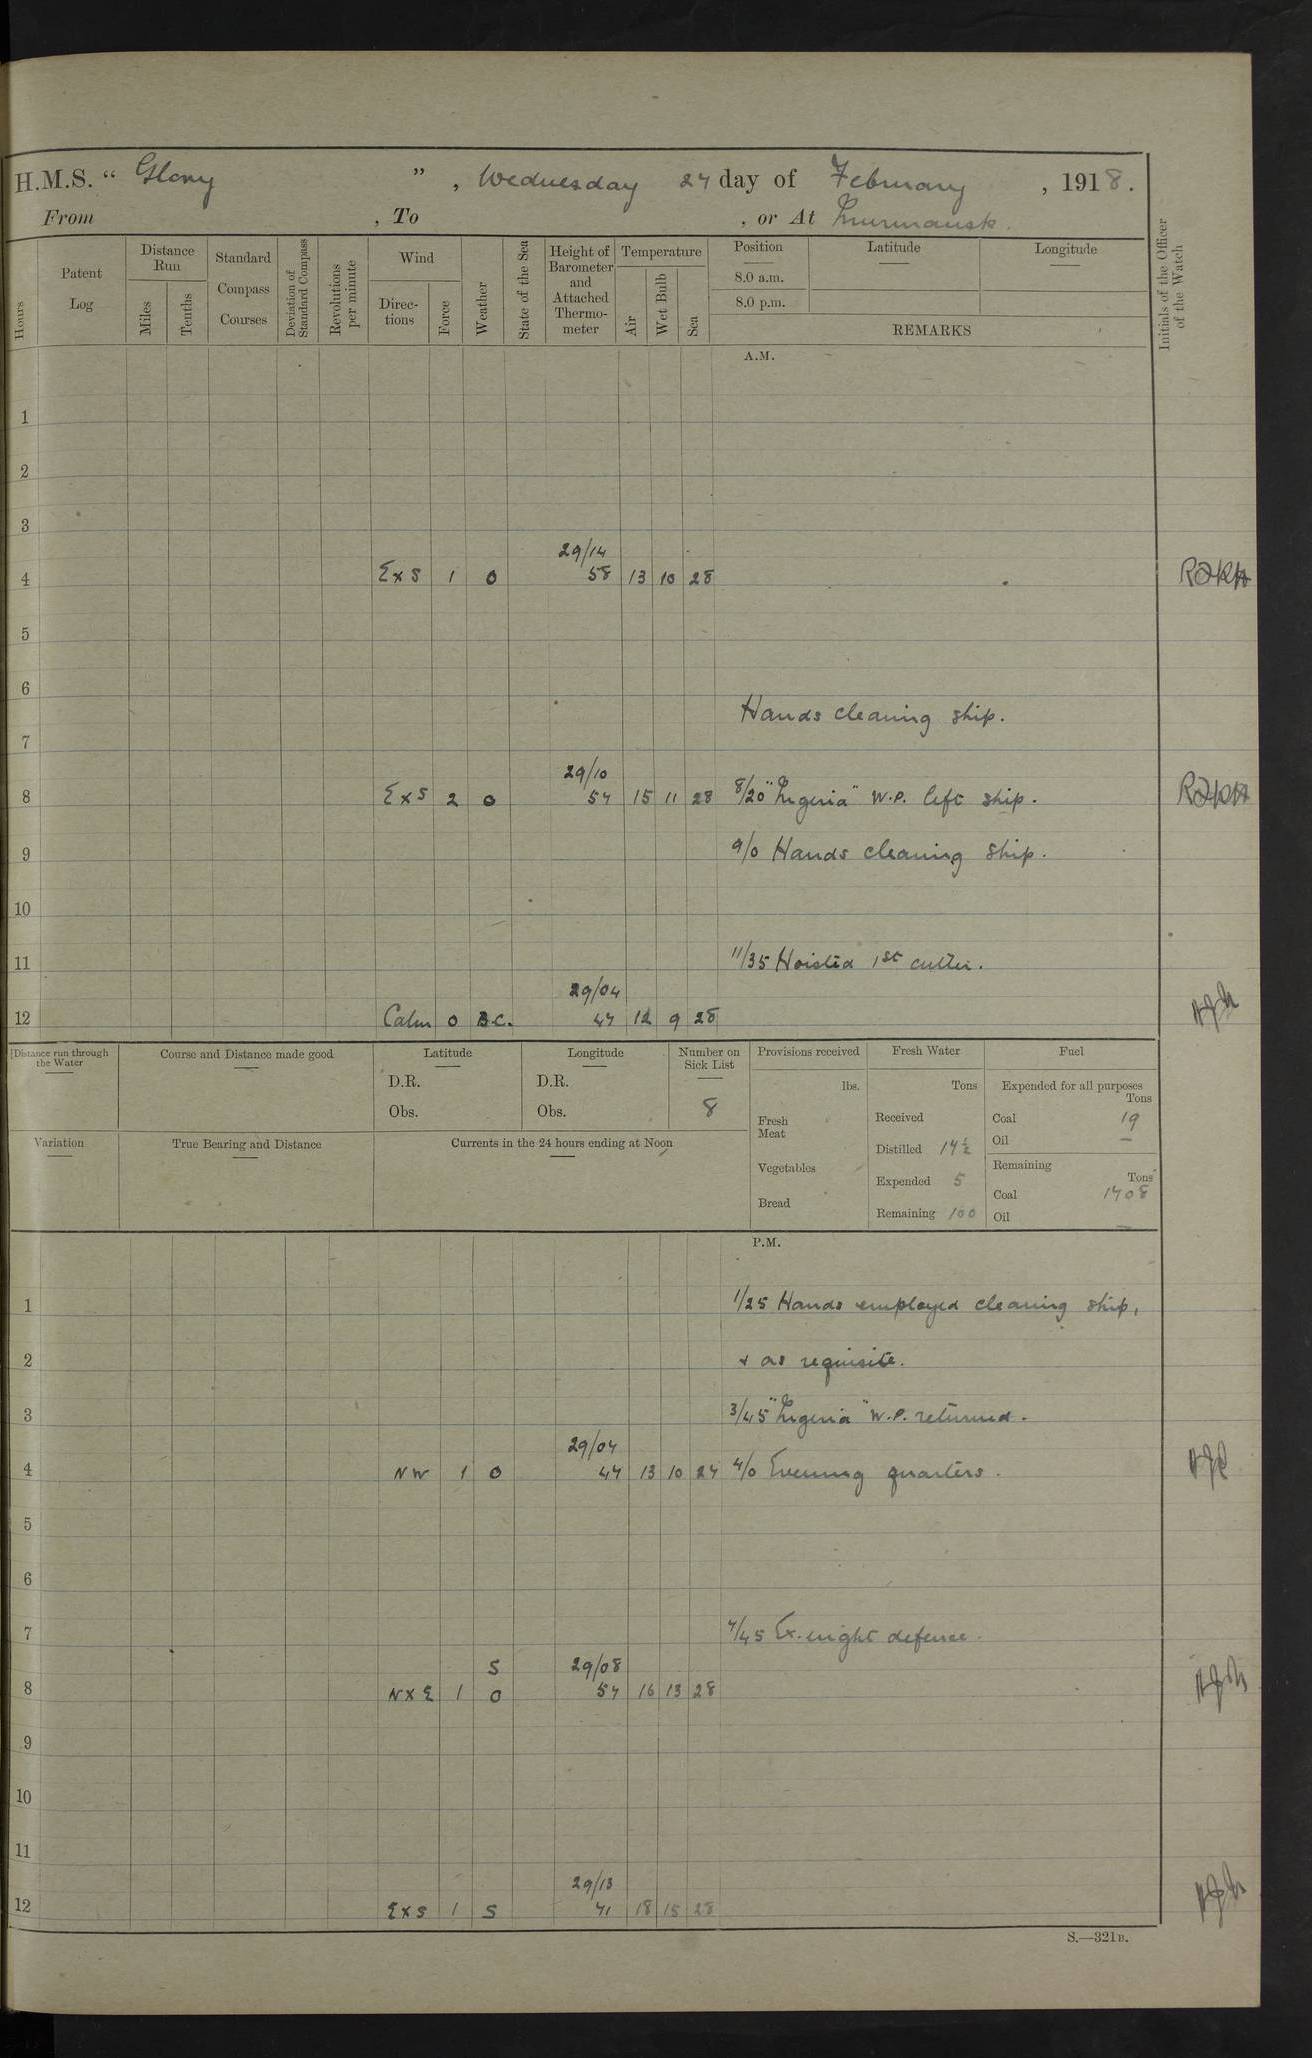 H.M.S. “ Glory ” , Wednesday 27 day of February , 1918.
From , To , or At Murmansk.
Hours
Patent Log
Distance Run
Miles
Tenths
Standard Compass Courses
Deviation of Standard Compass
Revolutions per minute
Wind
Directions
Force
Weather
State of the Sea
Height of Barometer and Attached Thermometer
Temperature
Air
Wet Bulb
Sea
Position
8.0 a.m.
8.0 p.m.
Latitude
Longitude
REMARKS
Initials of the Officer of the Watch
A.M.
1
2
3
29/14
4 ExS 1 O 58 13 10 28
5
6
Hands cleaning ship.
7
29/10
8 ExS 2 O 57 15 11 28 8/20 W.P. left ship.
9 9/0 Hands cleaning ship.
10
11 11/35 Hoisted 1st cutter.
29/04
12 Calm 0 B.C. 47 12 9 28
Distance run through the Water
Course and Distance made good
Latitude
D.R.
Obs.
Longitude
D.R.
Obs.
Number on Sick List
8
Provisions received
lbs.
Fresh Meat
Vegetables
Bread
Fresh Water
Tons
Received
Distilled 17½
Expended 5
Remaining 100
Fuel
Expended for all purposes
Tons
Coal 19
Oil —
Remaining
Tons
Coal 1708
Oil —
Variation
True Bearing and Distance
Currents in the 24 hours ending at Noon
P.M.
1 1/25 Hands employed cleaning ship,
2 & as requisite.
3 3/45 W.P. returned.
29/07
4 NW 1 O 47 13 10 27 4/0 Evening quarters.
5
6
7 7/45 Ex. night defence.
S 29/08
8 NxE 1 O 57 16 13 28
9
10
11
29/13
12 ExS 1 S 71 18 15 28
S.—321B.